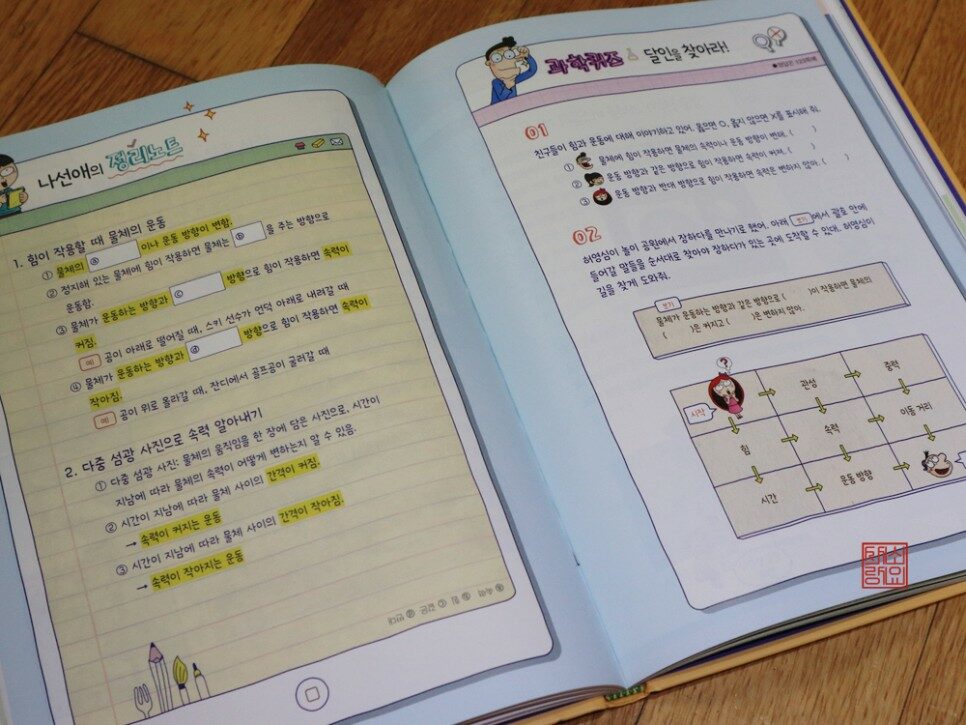 나선애의 정리노트
1. 힘이 작용할 때 물체의 운동
① 물체의 ⓐ 이나 운동 방향이 변함.
② 정지해 있는 물체에 힘이 작용하면 물체는 ⓑ 을 주는 방향으로
운동함.
③ 물체가 운동하는 방향과 ⓒ 방향으로 힘이 작용하면 속력이
커짐.
예 공이 아래로 떨어질 때, 스키 선수가 언덕 아래로 내려갈 때
④ 물체가 운동하는 방향과 ⓓ 방향으로 힘이 작용하면 속력이
작아짐.
예 공이 위로 올라갈 때, 잔디에서 골프공이 굴러갈 때
2. 다중 섬광 사진으로 속력 알아내기
① 다중 섬광 사진: 물체의 움직임을 한 장에 담은 사진으로, 시간이
지남에 따라 물체의 속력이 어떻게 변하는지 알 수 있음.
② 시간이 지남에 따라 물체 사이의 간격이 커짐.
→ 속력이 커지는 운동
③ 시간이 지남에 따라 물체 사이의 간격이 작아짐.
→ 속력이 작아지는 운동
ⓐ 속력 ⓑ 힘 ⓒ 같은 ⓓ 반대
과학퀴즈 달인을 찾아라!
01
친구들이 힘과 운동에 대해 이야기하고 있어. 옳으면 O, 옳지 않으면 X를 표시해 줘.
① 물체에 힘이 작용하면 물체의 속력이나 운동 방향이 변해. ( )
② 운동 방향과 같은 방향으로 힘이 작용하면 속력이 변해. ( )
③ 운동 방향과 반대 방향으로 힘이 작용하면 속력은 변하지 않아. ( )
02
허영심이 놀이 공원에서 장하다를 만나기로 했어. 아래 보기 에서 괄호 안에
들어갈 말들을 순서대로 찾아야 장하다가 있는 곳에 도착할 수 있대. 허영심이
길을 찾게 도와줘.
보기
물체가 운동하는 방향과 같은 방향으로 ( )이 작용하면 물체의
( )은 커지고 ( )은 변하지 않아.
시작
관성
중력
힘
속력
이동 거리
시간
운동 방향